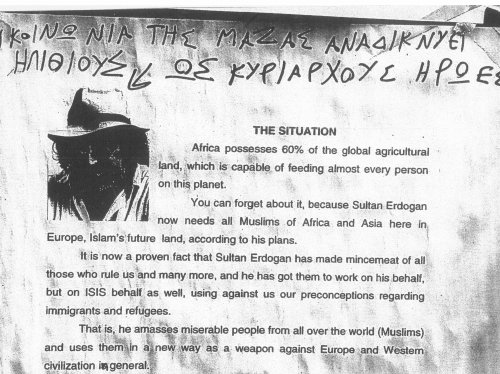 ΚΟΙΝΩΝΙΑ ΤΗΣ ΜΑΖΑΣ ΑΝΑΔΙΚΝΥΕΙ
ΗΛΙΘΙΟΥΣ ΩΣ ΚΥΡΙΑΡΧΟΥΣ ΗΡΩΕΣ
THE SITUATION
Africa possesses 60% of the global agricultural
land, which is capable of feeding almost every person
on this planet.
You can forget about it, because Sultan Erdogan
now needs all Muslims of Africa and Asia here in
Europe, Islam's future land, according to his plans.
It is now a proven fact that Sultan Erdogan has made mincemeat of all
those who rule us and many more, and he has got them to work on his behalf,
but on ISIS behalf as well, using against us our preconceptions regarding
immigrants and refugees.
That is, he amasses miserable people from all over the world (Muslims)
and uses them in a new way as a weapon against Europe and Western
civilization in general.